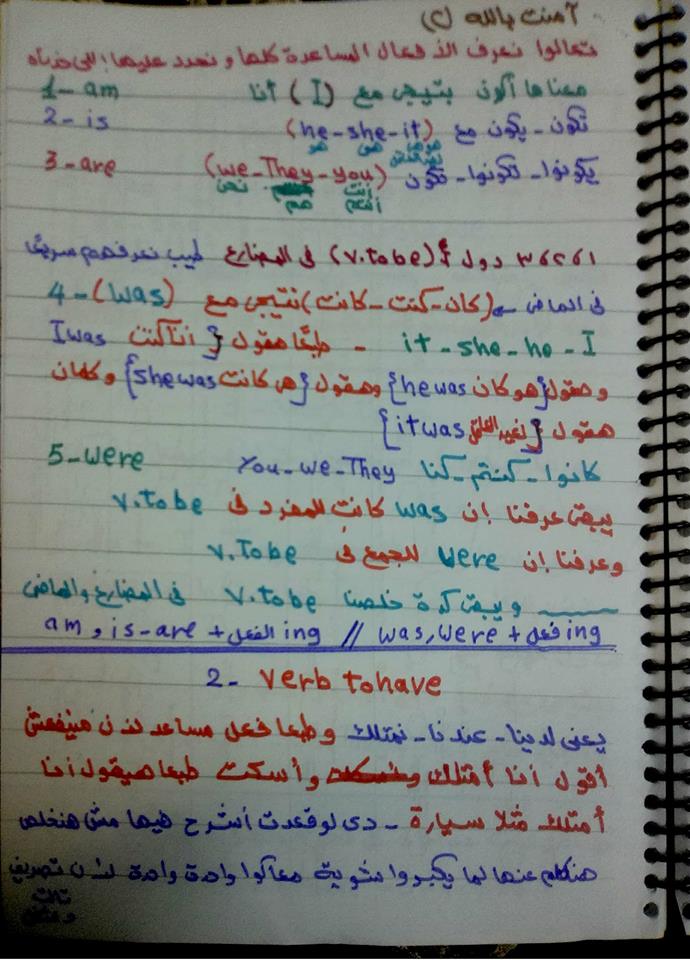 آمنت بالله (2)
تعالوا نعرف الأفعال المساعدة كلها و نتعدد عليها اللى خدناه
1- am معناها أكون بتيجى مع (I) أنا
2- is تكون - يكون مع (he-she-it)
هو هى
3- are يكونوا - تكونوا - تكون (we-They-you)
نحن هم أنت
أنتم
1،2،3 دول (v.tobe) فى المضارع طيب نعرفهم سريعًا
فى الماضى (كان - كنت - كانت) بتيجى مع 4-(was)
it-she-he-I - طبعًا هقول {أنا كنت I was
وهقول {هو كان he was} وهقول {هى كانت she was} وكمان
هقول {لغير العاقل it was}
5-were كانوا - كنتم - كنا You-we-They
يبقى عرفنا إن was كانت للمفرد فى v.tobe
وعرفنا إن were للجمع فى v.Tobe
ويبقى كدة خلصنا v.tobe فى المضارع والماضى
am و is-are + الفعل ing // was, were + فعل ing
2- verb tohave
يعنى لدينا - عندنا - نمتلك وطبعا فعل مساعد لأن مينفعش
أقول أنا أمتلك وأسكت طبعا هيقول أنا
أمتلك مثلا سيارة - دى لو قعدت أشرح فيها مش هنخلص
هنتكلم عنها لما يكبروا شوية معاكوا واحدة واحدة لأن تصريف
تالت